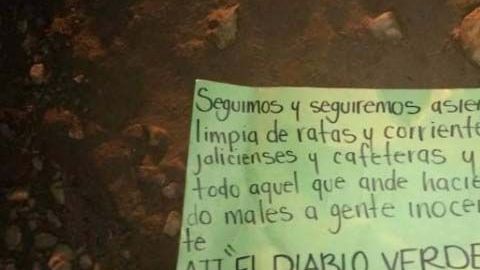 Seguimos y seguiremos asien
limpia de ratas y corriente
jalicienses y cafeteras y
todo aquel que ande hacie
do males a gente inocen
te
ATT" EL DIABLO VERDE